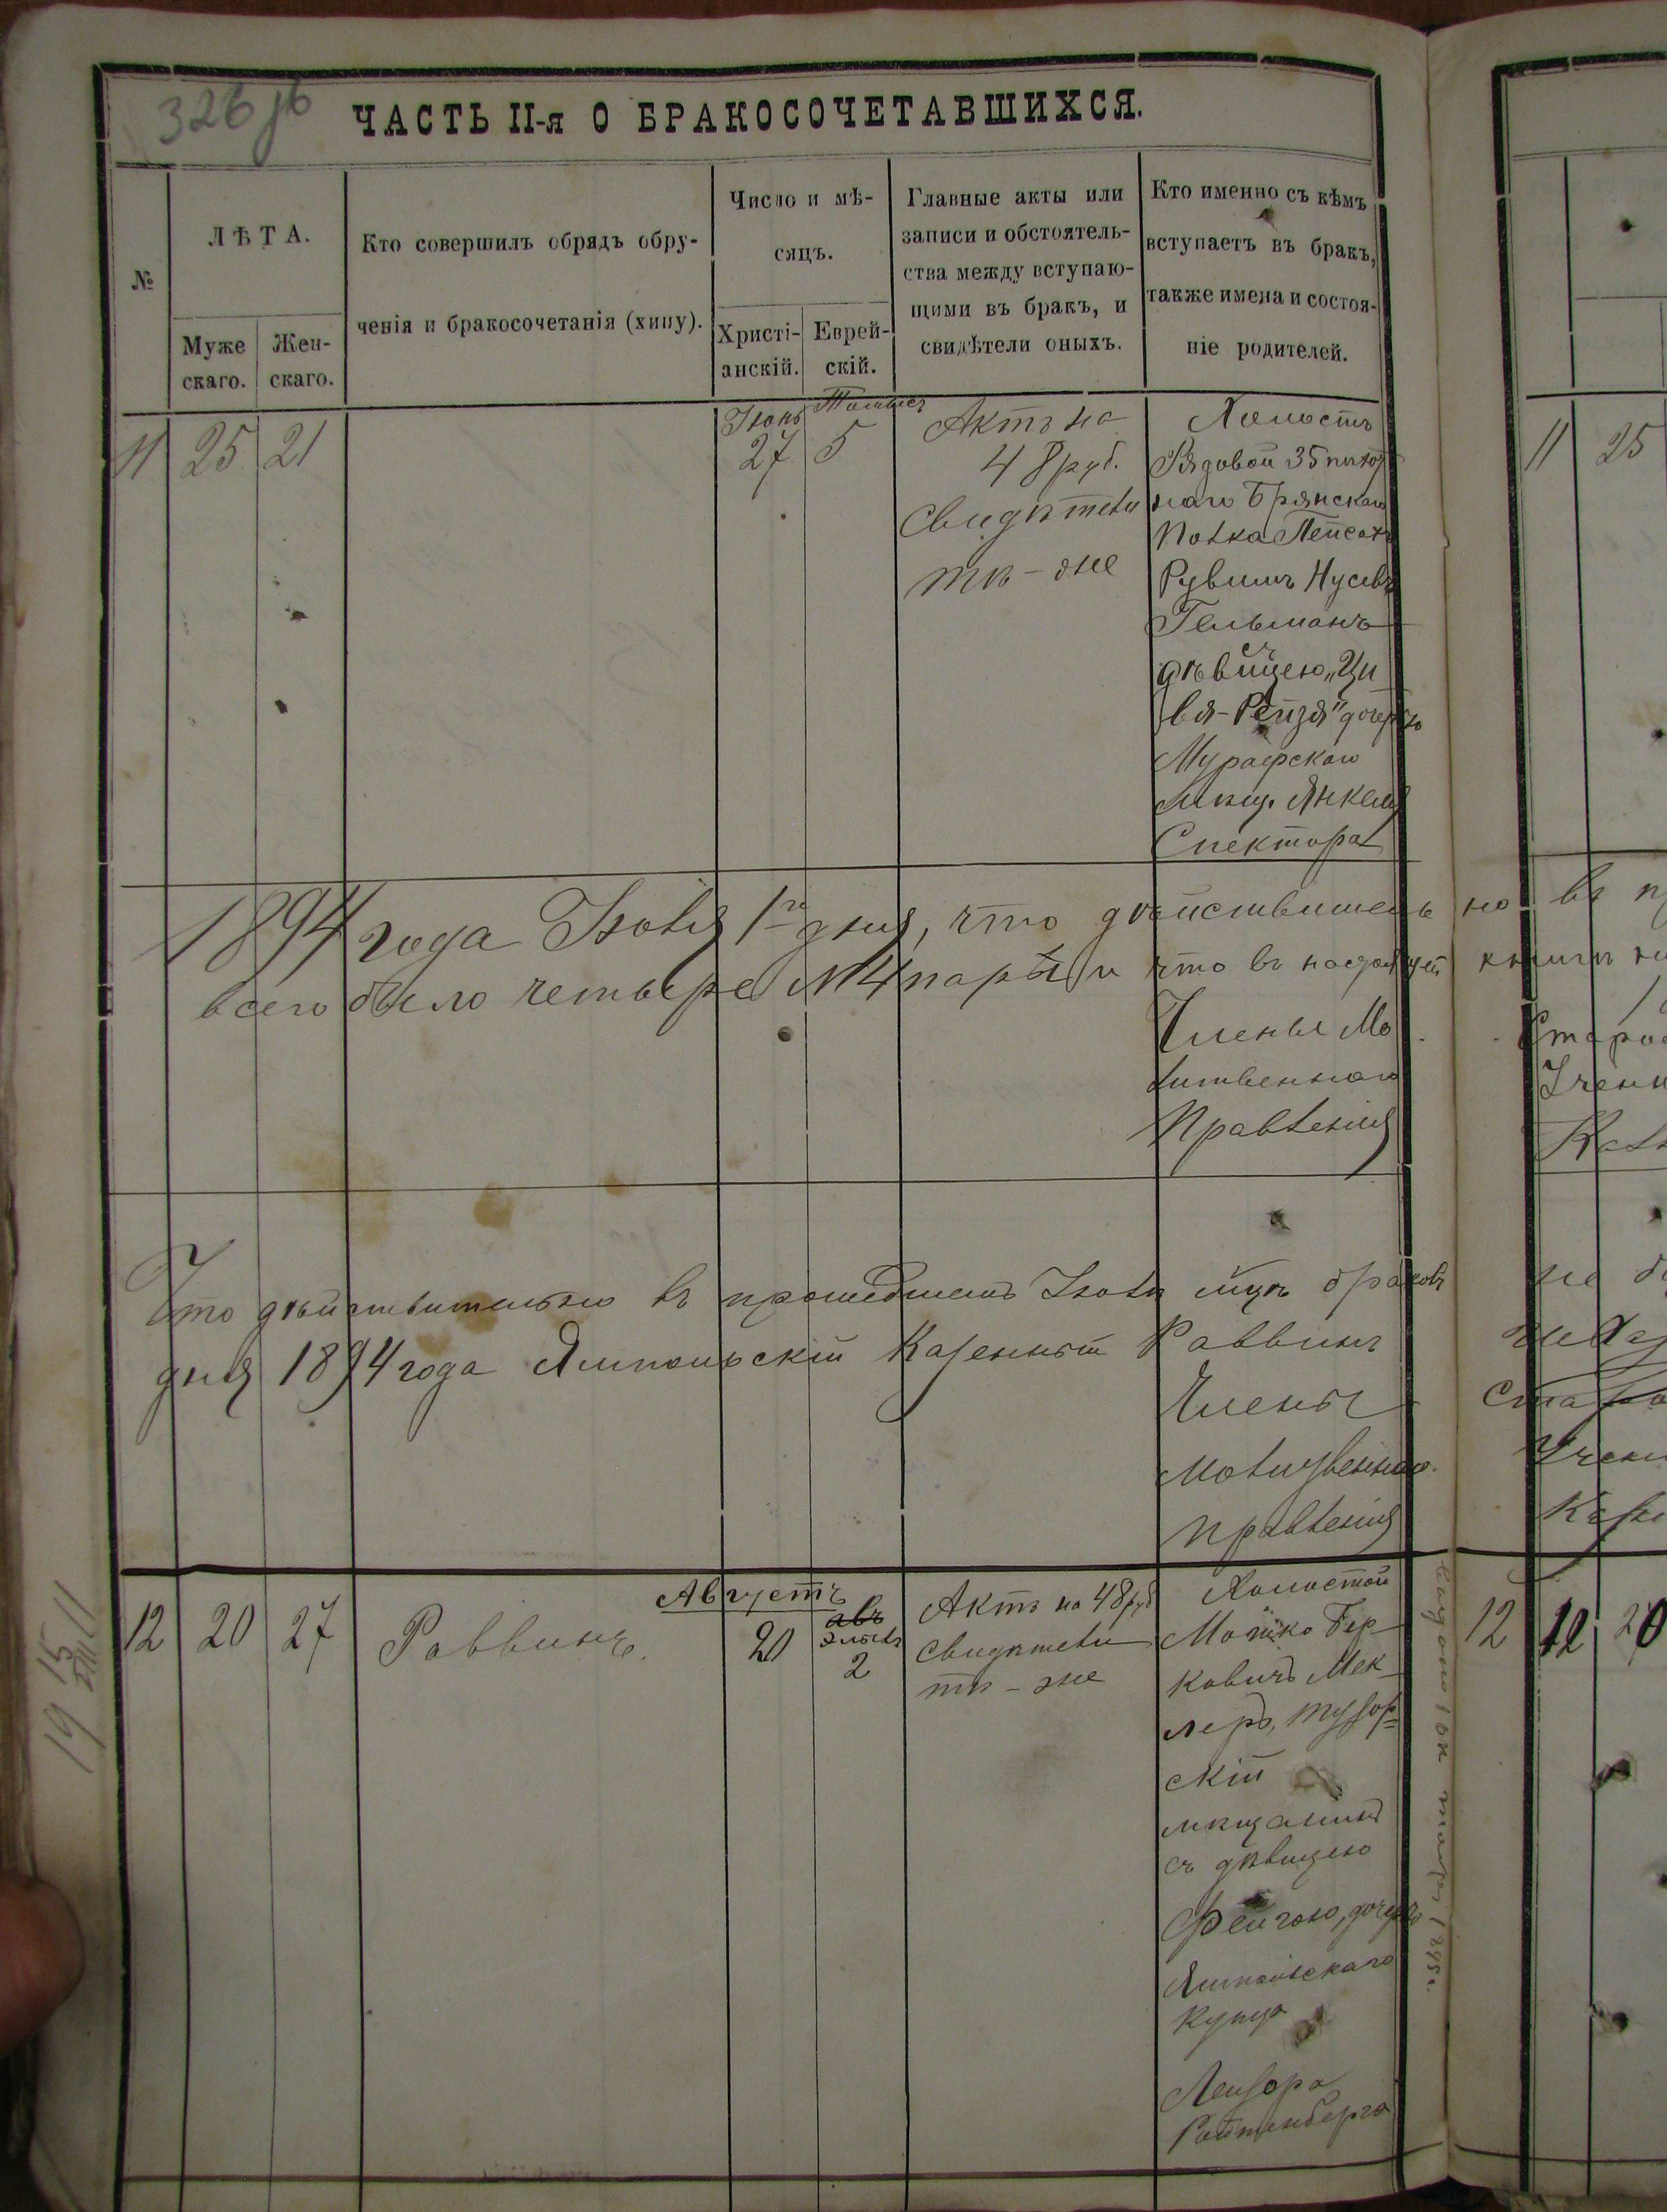 326 об
ЧАСТЬ II-я О БРАКОСОЧЕТАВШИХСЯ.
№
ЛѢТА.
Муже
скаго.
Жен-
скаго.
Кто совершилъ обрядъ обру-
ченія и бракосочетанія (хипу).
Число и мѣ-
сяцъ.
Христі-
анскій.
Еврей-
скій.
Главные акты или
записи и обстоятель-
ства между вступаю-
щими въ бракъ, и
свидѣтели оныхъ.
Кто именно съ кѣмъ
вступаетъ въ бракъ,
также имена и состоя-
ніе родителей.
11 25 21
Іюнь
27
5
Актъ на
48 руб.
Свидѣтели
тѣ-же
Холостъ
Рядовой 35 пѣхот
наго Брянскаго
Полка Пейсахъ
Рувимъ Нусевъ
Гельманъ
съ
дѣвицею „Ци
вя-Рейзя" дочерью
Мурафскаго
мѣщ. Янкеля
Спектора
11 25
1894 года Іюля 1го дня, что дѣйствительно въ
всего было четыре №4 пары и что въ настоящей книгѣ
Члены Мо
литвеннаго
Правленія
Старо
Учен
Что дѣйствительно въ прошедшемъ Іюлѣ мцѣ браковъ не
дня 1894 года Ямпольскій Казенный Раввинъ
Члены
молитвеннаго
правленія
Учен
12 20 27
Раввинъ.
Августъ
20
авъ
элывъ
2
Актъ на 48 руб
Свидѣтели
тѣ-же
Холостой
Мошко Бер-
ковичъ Мек-
леръ,
скій
мѣщанинъ
съ дѣвицею
Фейгою, дочерью
Ямпольскаго
Купца
Лейзора
Ройтенберга
12 12 20